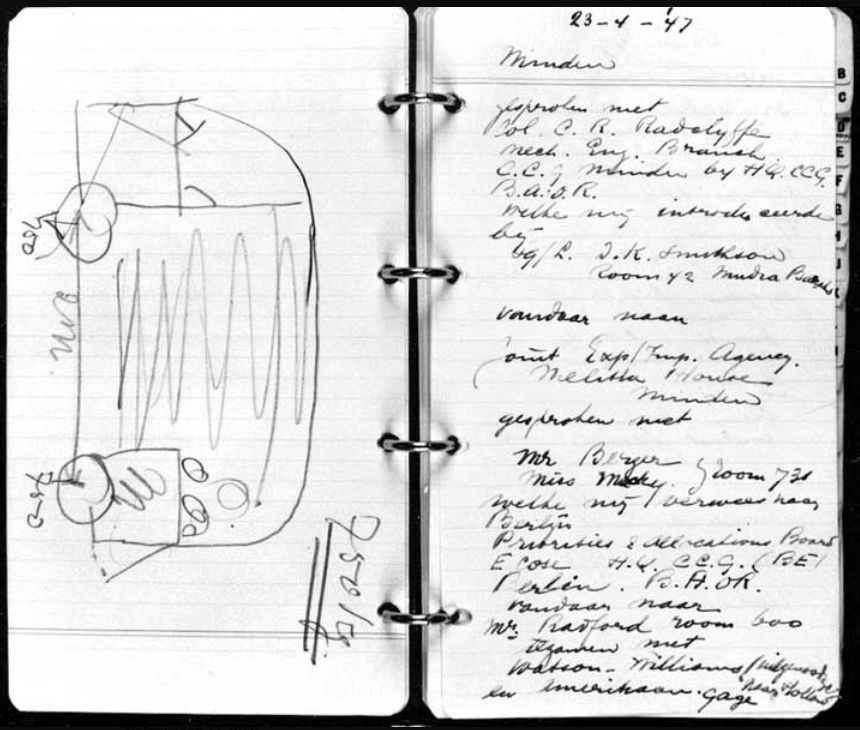 750 kg
23-4-'47
Minden
gesproken met
Col. C. R. Radclyffe
Mech. Eng. Branch
C.C.G Minden by H.Q. CCG,
B.A.O.R.
welke mij introduceerde
bij
J.K. Smithson
Room 42 Mudra
vandaar naar
Joint Exp/Imp. Agency.
Melitta House
Minden
gesproken met
Mr Berger
Miss room 731
welke mij verwees naar
Berlijn
Priorities & Allocations Board
H.Q. C.C.G. (BE)
Berlin. B.A.OR.
vandaar naar
Mr. Radford room 600
tezamen met
Watson-Williams
naar Holland
en Amerikaan. Gage
B
C
D
E
F
G
H